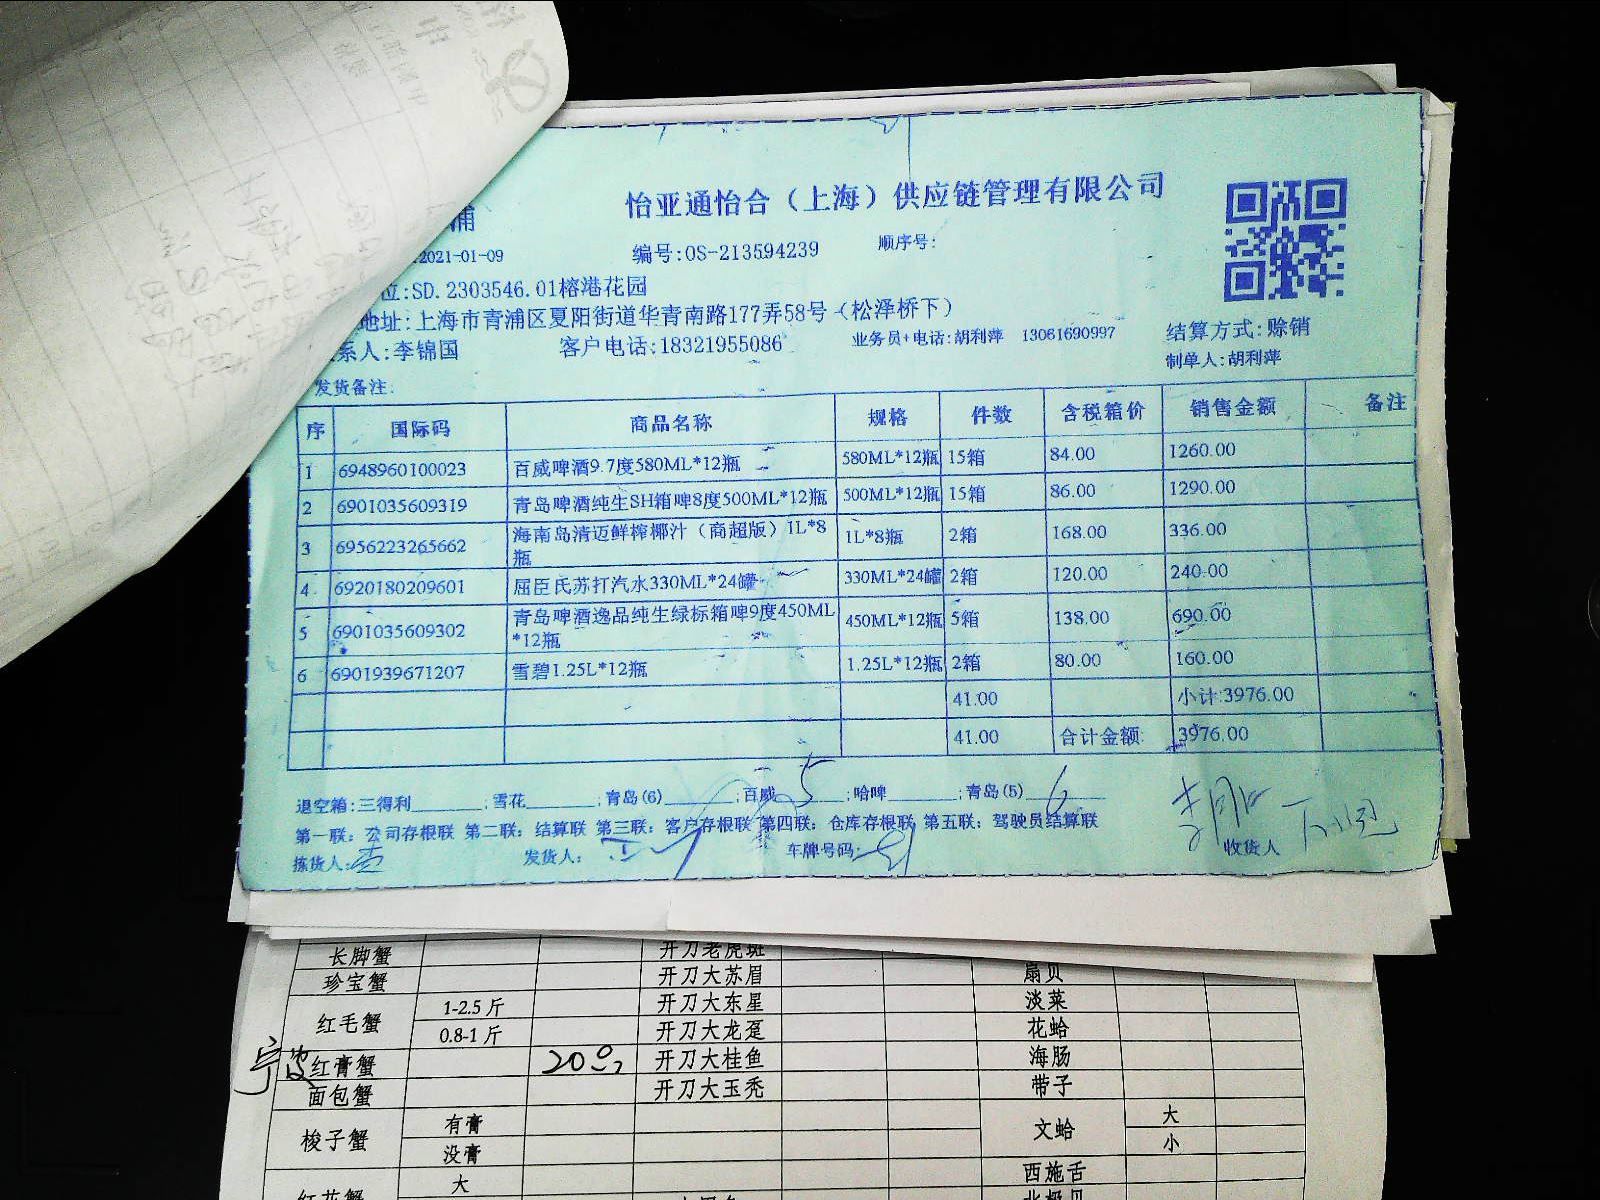 怡亚通怡合（上海）供应链管理有限公司
浦
2021-01-09 编号:OS-213594239 顺序号:
位:SD.2303546.01榕港花园
地址:上海市青浦区夏阳街道华青南路177弄58号（松泽桥下）
系人:李锦国 客户电话:18321955086 业务员+电话:胡利萍 13061690997 结算方式:赊销
制单人:胡利萍
发货备注:
序 国际码 商品名称 规格 件数 含税箱价 销售金额 备注
1 6948960100023 百威啤酒9.7度580ML*12瓶 580ML*12瓶 15箱 84.00 1260.00
2 6901035609319 青岛啤酒纯生SH箱啤8度500ML*12瓶 500ML*12瓶 15箱 86.00 1290.00
3 6956223265662 海南岛清迈鲜榨椰汁（商超版）1L*8瓶 1L*8瓶 2箱 168.00 336.00
4 6920180209601 屈臣氏苏打汽水330ML*24罐 330ML*24罐 2箱 120.00 240.00
5 6901035609302 青岛啤酒逸品纯生绿标箱啤9度450ML*12瓶 450ML*12瓶 5箱 138.00 690.00
6 6901939671207 雪碧1.25L*12瓶 1.25L*12瓶 2箱 80.00 160.00
41.00 小计:3976.00
41.00 合计金额: 3976.00
退空箱:三得利______;雪花______;青岛(6)______;百威 5 ;哈啤______;青岛(5) 6
第一联：公司存根联 第二联：结算联 第三联：客户存根联 第四联：仓库存根联 第五联：驾驶员结算联
拣货人: 发货人: 车牌号码: 收货人
长脚蟹 开刀老虎斑
珍宝蟹 开刀大苏眉 扇贝
红毛蟹 1-2.5斤 开刀大东星 淡菜
0.8-1斤 开刀大龙趸 花蛤
宁波 红膏蟹 开刀大桂鱼 海肠
面包蟹 开刀大玉秃 带子
梭子蟹 有膏 文蛤 大
没膏 小
红花蟹 大 西施舌
北极贝